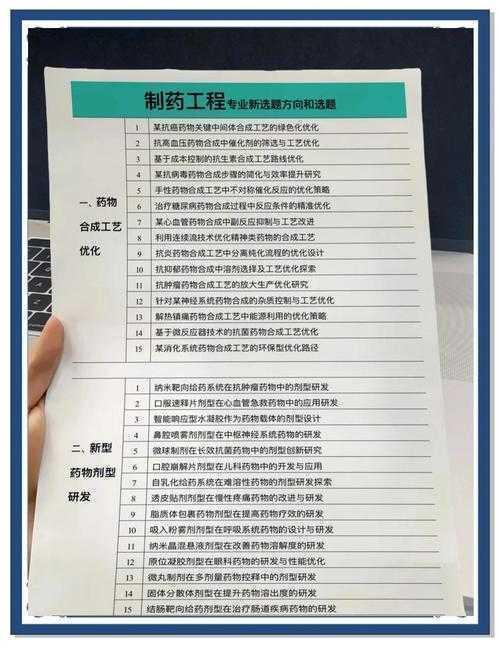 制药工程专业新选题方向和选题
一、药物
合成工艺
优化
1 某抗癌药物关键中间体合成工艺的绿色化优化
2 抗高血压药物合成中催化剂的筛选与工艺优化
3 基于成本控制的抗生素合成工艺路线优化
4 某抗病毒药物合成步骤的简化与效率提升研究
5 手性药物合成工艺中不对称催化反应的优化策略
6 治疗糖尿病药物合成过程中反应条件的精准优化
7 某心血管药物合成中副反应抑制与工艺改进
8 利用连续流技术优化精神类药物的合成工艺
9 抗炎药物合成工艺中分离纯化流程的优化设计
10 抗抑郁药物合成中溶剂选择及工艺优化探索
11 抗肿瘤药物合成工艺的放大生产优化研究
12 针对某神经系统药物合成的杂质控制与工艺优化
13 解热镇痛药物合成工艺中能源利用的优化策略
14 基于微反应器技术的抗菌药物合成工艺优化
15 某消化系统药物合成工艺的环保型优化路径
二、新型
药物剂型
研发
1 纳米靶向给药系统在抗肿瘤药物中的剂型研发
2 口服速释片剂型在心血管急救药物中的应用研发
3 智能响应型水凝胶作为药物载体的剂型设计
4 鼻腔喷雾剂剂型在中枢神经系统药物的研发
5 微球制剂在长效抗菌药物中的剂型创新研究
6 口腔崩解片剂型在儿科药物中的开发与应用
7 自乳化给药系统在难溶性药物的剂型研发探索
8 透皮贴剂剂型在慢性疼痛药物的改进与研发
9 脂质体包裹药物剂型在提高药物疗效的研发
10 吸入粉雾剂剂型在呼吸系统药物的设计与研发
11 纳米晶混悬液剂型在改善药物溶解度的研发
12 原位凝胶剂型在眼科药物的研发与性能优化
13 微丸制剂在多剂量药物控释中的剂型研发
14 固体分散体剂型在提升药物溶出度的研发
15 结肠靶向给药剂型在治疗肠道疾病药物的研发